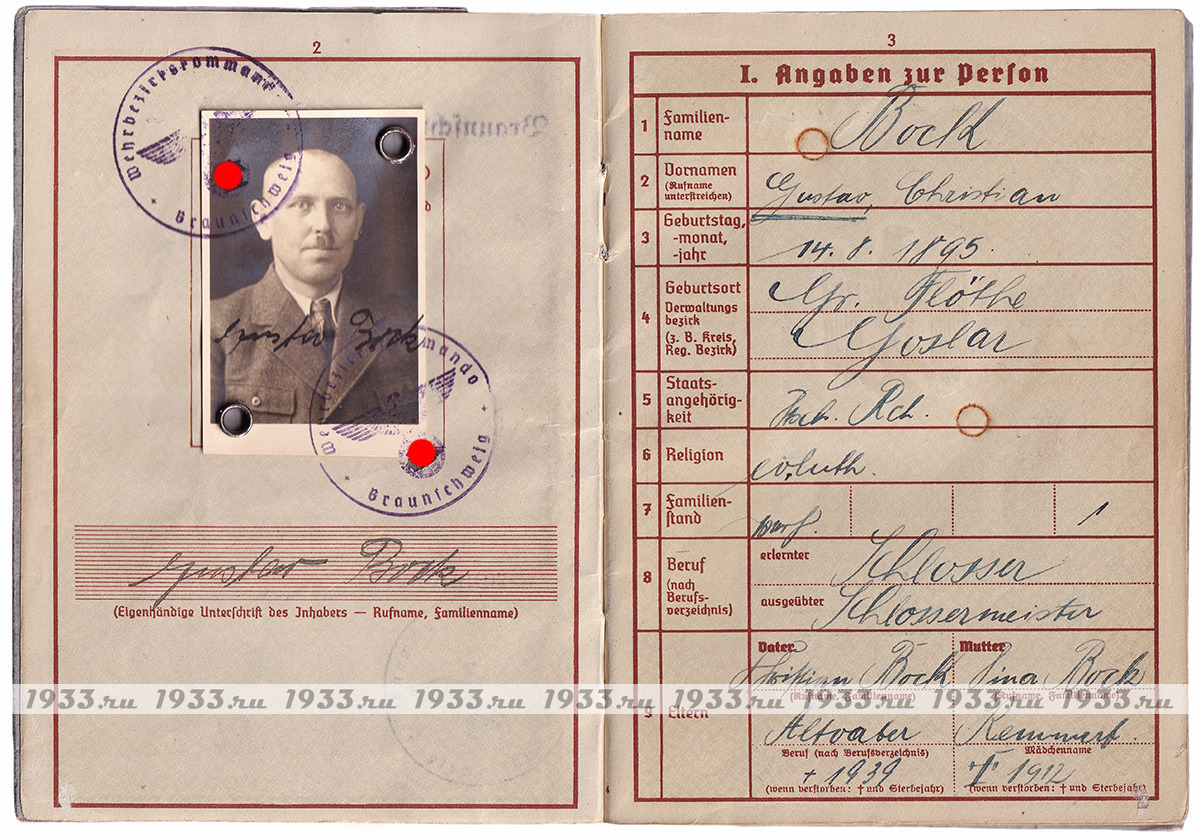 2
Wehrbezirkskommando
Braunschweig
Gustav Bock
Wehrbezirkskommando
Braunschweig
Gustav Bock
(Eigenhändige Unterschrift des Inhabers — Rufname, Familienname)
3
I. Angaben zur Person
1 Familien-
name
Bock
2 Vornamen
(Rufname
unterstreichen)
Gustav, Christian
3 Geburtstag,
-monat,
-jahr
14. 8. 1895.
4 Geburtsort
Verwaltungs
bezirk
(z. B. Kreis,
Reg. Bezirk)
Gr. Flöthe
Goslar
5 Staats-
angehörig-
keit
Rch.
6 Religion
ev. luth.
7 Familien-
stand
verh.
8 Beruf
(nach
Berufs-
verzeichnis)
erlernter
Schlosser
ausgeübter
Schlossermeister
9 Eltern
Vater
Bock
(Rufname, Familienname)
Altvater
Beruf (nach Berufsverzeichnis)
+ 1939
(wenn verstorben: † und Sterbejahr)
Mutter
Bock
(Rufname, Familienname)
Mädchenname
1912
(wenn verstorben: † und Sterbejahr)
1933.ru 1933.ru 1933.ru 1933.ru 1933.ru 1933.ru 1933.ru 1933.ru 1933.ru